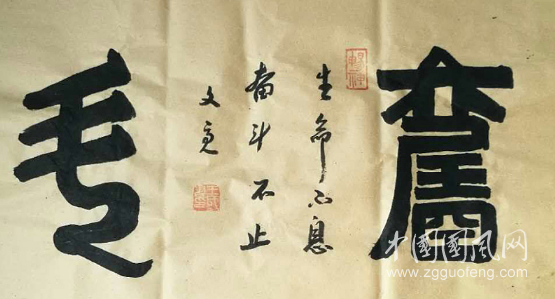 奮斗
生命不息
奋斗不止
文
中國國風网
www.zgguofeng.com